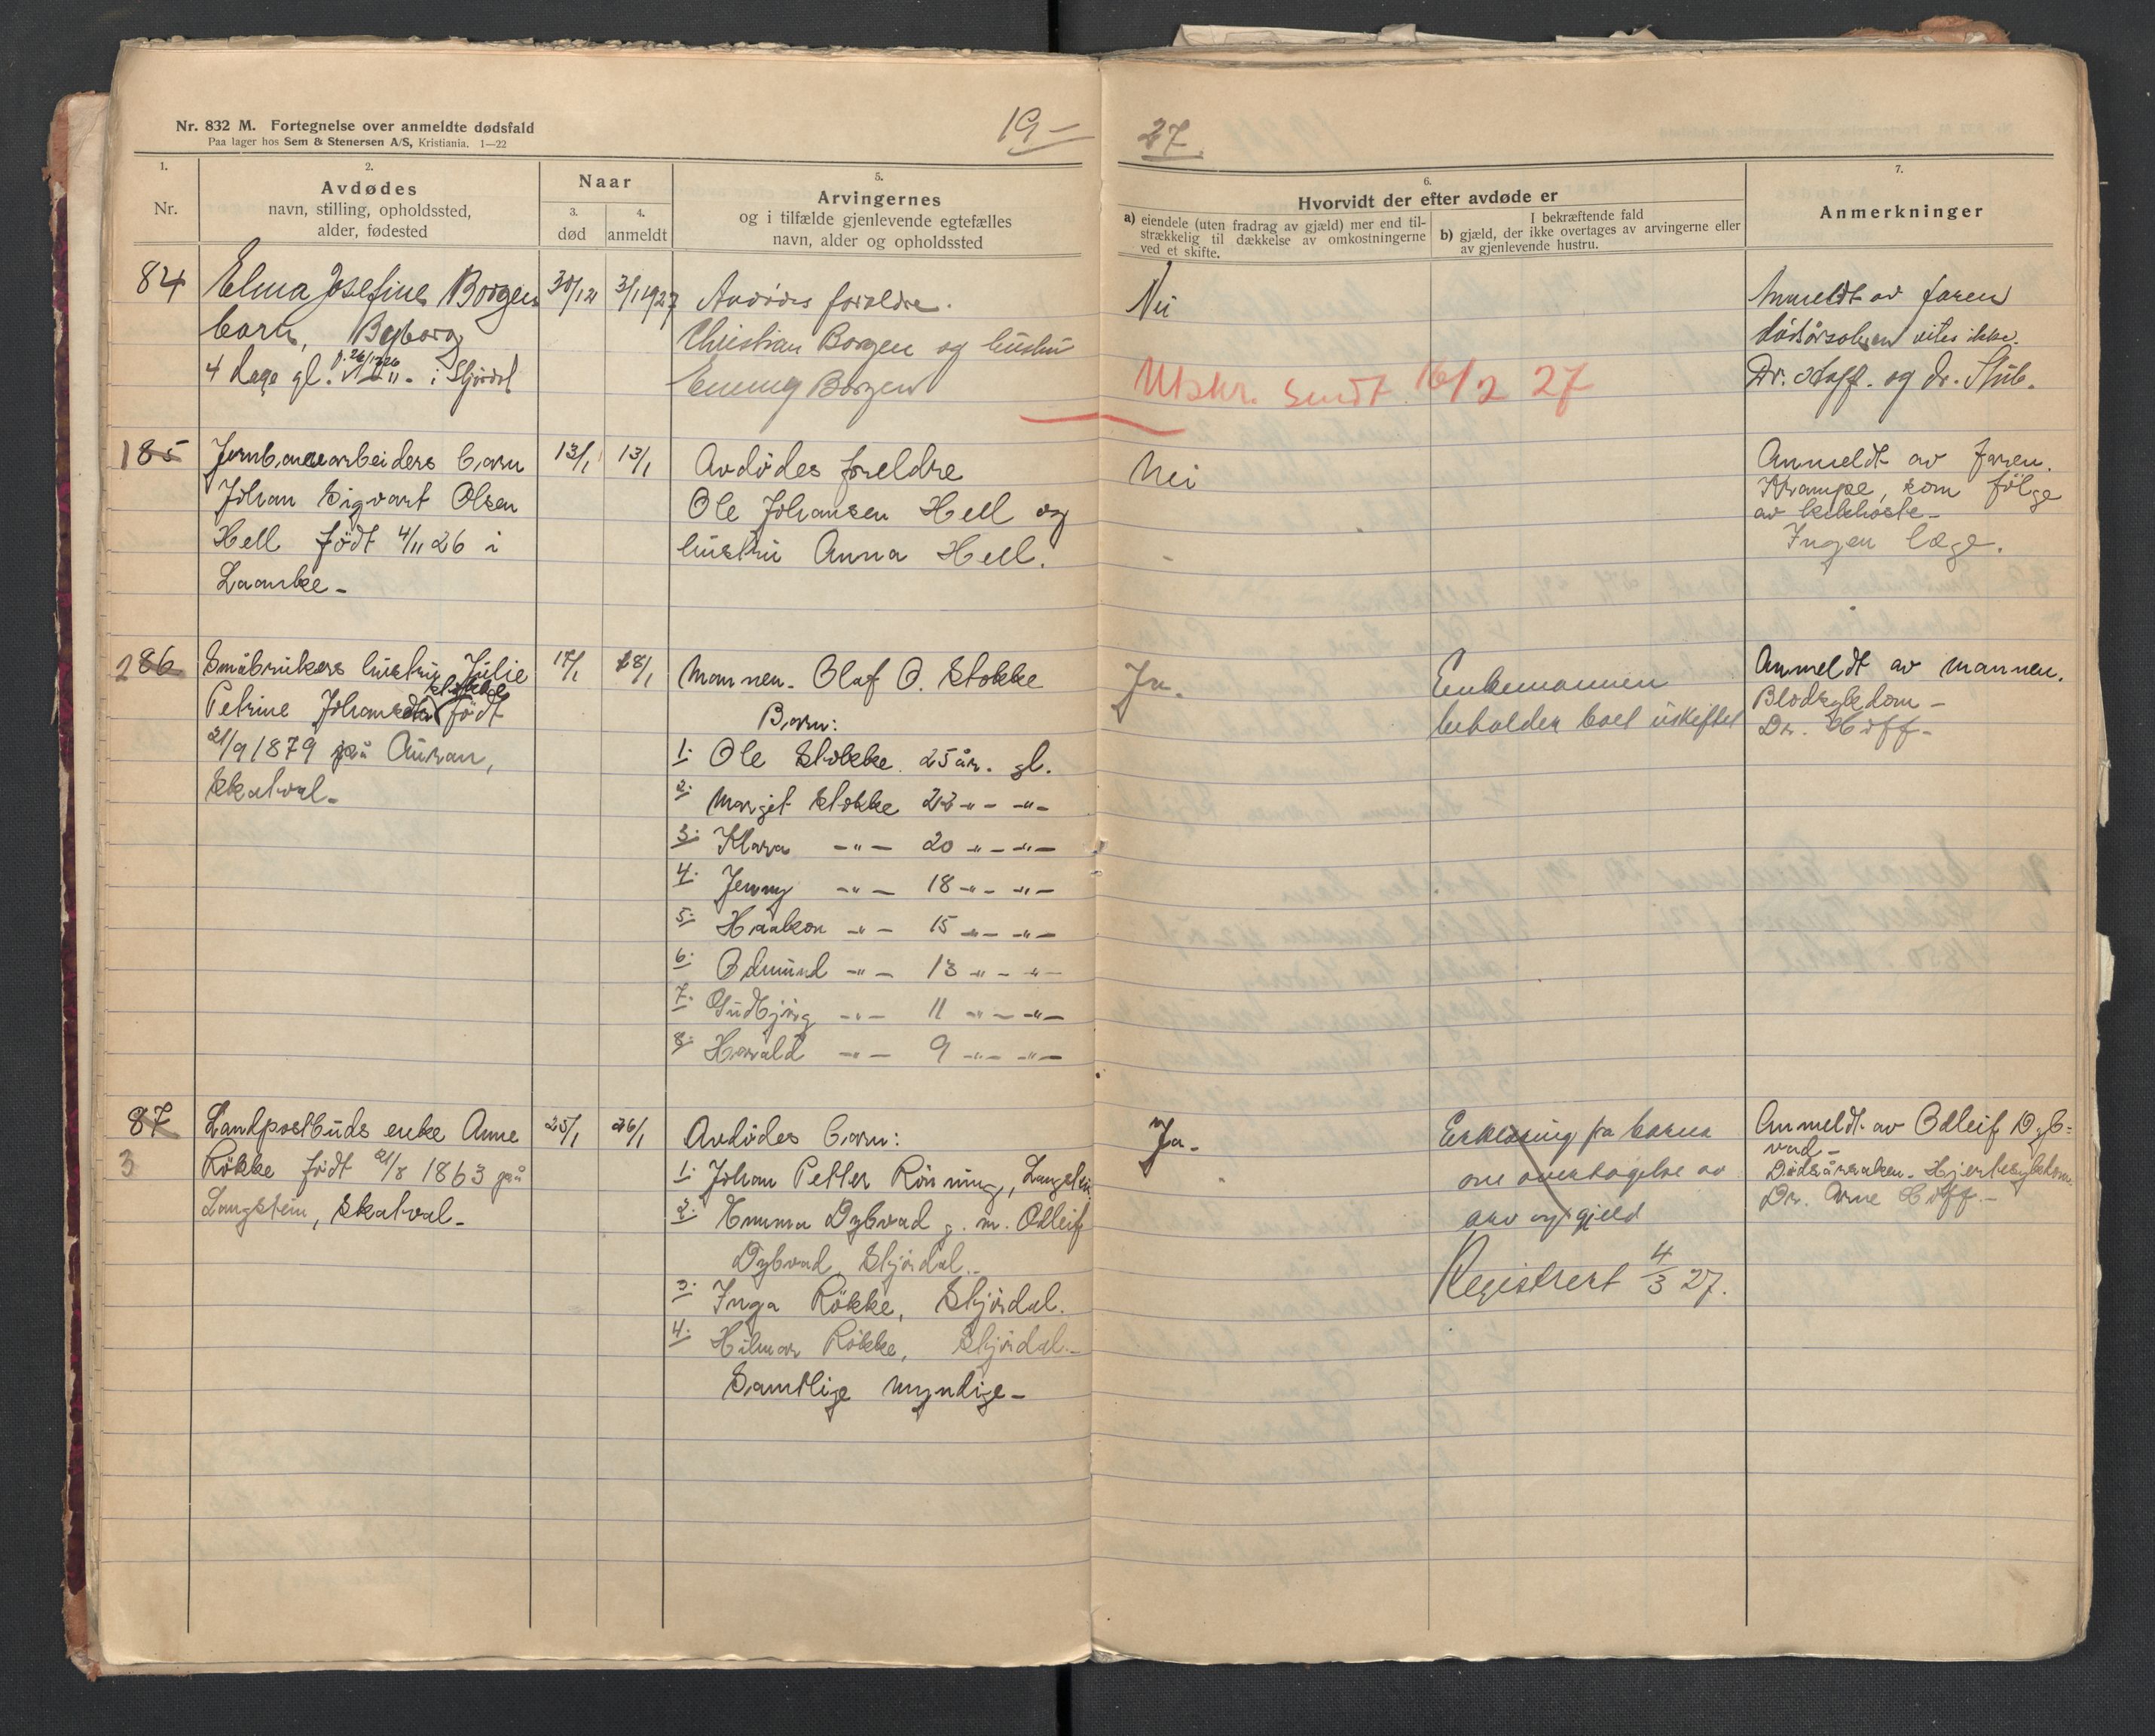 Nr. 832 M. Fortegnelse over anmeldte dødsfald
Paa lager hos Sem & Stenersen A/S, Kristiania. 1—22
19—
27.
1.
Nr.
2.
Avdødes
navn, stilling, opholdssted,
alder, fødested
Naar
3.
død
4.
anmeldt
5.
Arvingernes
og i tilfælde gjenlevende egtefælles
navn, alder og opholdssted
6.
Hvorvidt der efter avdøde er
a) eiendele (uten fradrag av gjæld) mer end til-
strækkelig til dækkelse av omkostningerne
ved et skifte.
I bekræftende fald
b) gjæld, der ikke overtages av arvingerne eller
av gjenlevende hustru.
7.
Anmerkninger
84
Elma Josefine Borgen
barn,
4 dage gl. f. 26/12 26 i Stjørdal
30/12
3/1 1927
Avdødes foreldre.
Christian Borgen og hustru
Emmy Borgen
Nei
Utskr. sendt 16/2 27
Anmeldt av faren
dødsårsaken vites ikke.
Dr. Hoff. og dr. Stub.
1 85
Jernbanearbeiders barn
Johan Sigvart Olsen
Hell født 4/11 26 i
Laanke -
13/1
13/1
Avdødes foreldre
Ole Johansen Hell og
hustru Anna Hell.
Nei
Anmeldt av faren.
Krampe, som følge
av kikhoste -
Ingen læge.
2 86
Småbrukers hustru Julie
Petrine Johansdtr Stokke født
21/9 1879 på Auran,
Skatval -
17/1
18/1
Mannen. Olaf O. Stokke
Barn:
1. Ole Stokke. 25 år. gl.
2. Margit Stokke 22 -"- -"-
3. Klara -"- 20 -"- -"-
4. Jenny -"- 18 -"- -"-
5. Haakon -"- 15 -"- -"-
6. Odmund -"- 13 -"- -"-
7. Gudbjørg -"- 11 -"- -"-
8. Harald -"- 9 -"- -"-
Ja.
Enkemannen
beholder boet uskiftet
Anmeldt av mannen.
Blodsykdom -
Dr. Hoff -
87
3
Landpostbuds enke Anne
Røkke født 21/8 1863 på
Langstein, Skatval -
25/1
26/1
Avdødes barn:
1. Johan Petter Rönning, Langstein.
2. Emma Dybvad g. m. Odleif
Dybvad, Stjørdal. -
3. Inga Røkke, Stjørdal.
4. Hilmar Røkke, Stjørdal. -
Samtlige myndige -
Ja -
Erklæring fra barna
om overtagelse av
arv og gjeld
Registrert 4/3 27.
Anmeldt av Odleif Dyb=
vad -
Dødsårsaken. Hjertesykdom.
Dr. Arne Hoff. -